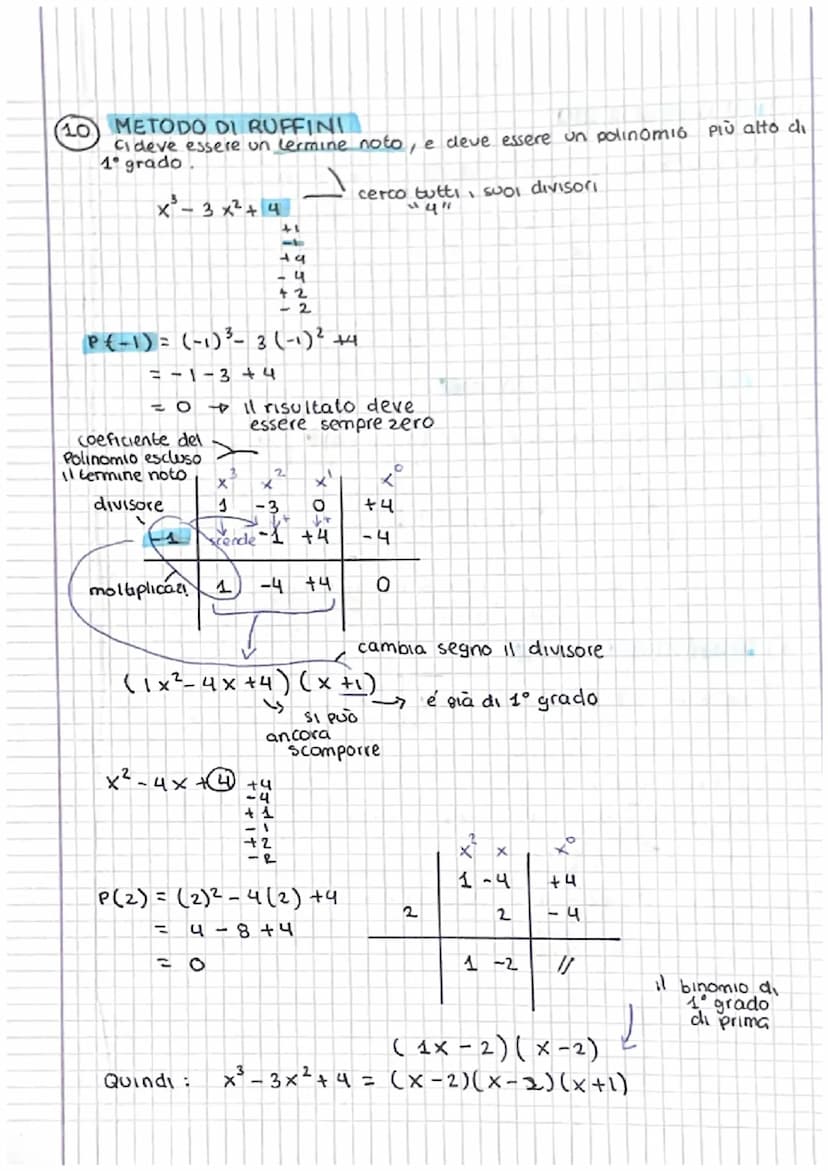 10 METODO DI RUFFINI
Ci deve essere un termine noto, e deve essere un polinomio più alto di
1° grado.
x³ - 3x² + 4
cerco tutti i suoi divisori
"4"
+1
-1
+4
-4
+2
-2
P(-1) = (-1)³ - 3(-1)² +4
= -1 - 3 + 4
= 0 → il risultato deve
essere sempre zero
coeficiente del
Polinomio escluso
il termine noto
x³ x² x¹ x⁰
divisore 1 -3 0 +4
-1 scende -1 +4 -4
moltiplicazi. 1 -4 +4 0
cambia segno il divisore
(1x² - 4x + 4)(x +1)
é già di 1° grado
si può
ancora
scomporre
x² - 4x + 4
+4
-4
+1
-1
+2
-2
x² x x⁰
1 -4 +4
2 2 -4
1 -2 //
P(2) = (2)² - 4(2) + 4
= 4 - 8 + 4
= 0
il binomio di
1° grado
di prima
(1x - 2)(x - 2)
Quindi: x³ - 3x² + 4 = (x-2)(x-2)(x+1)